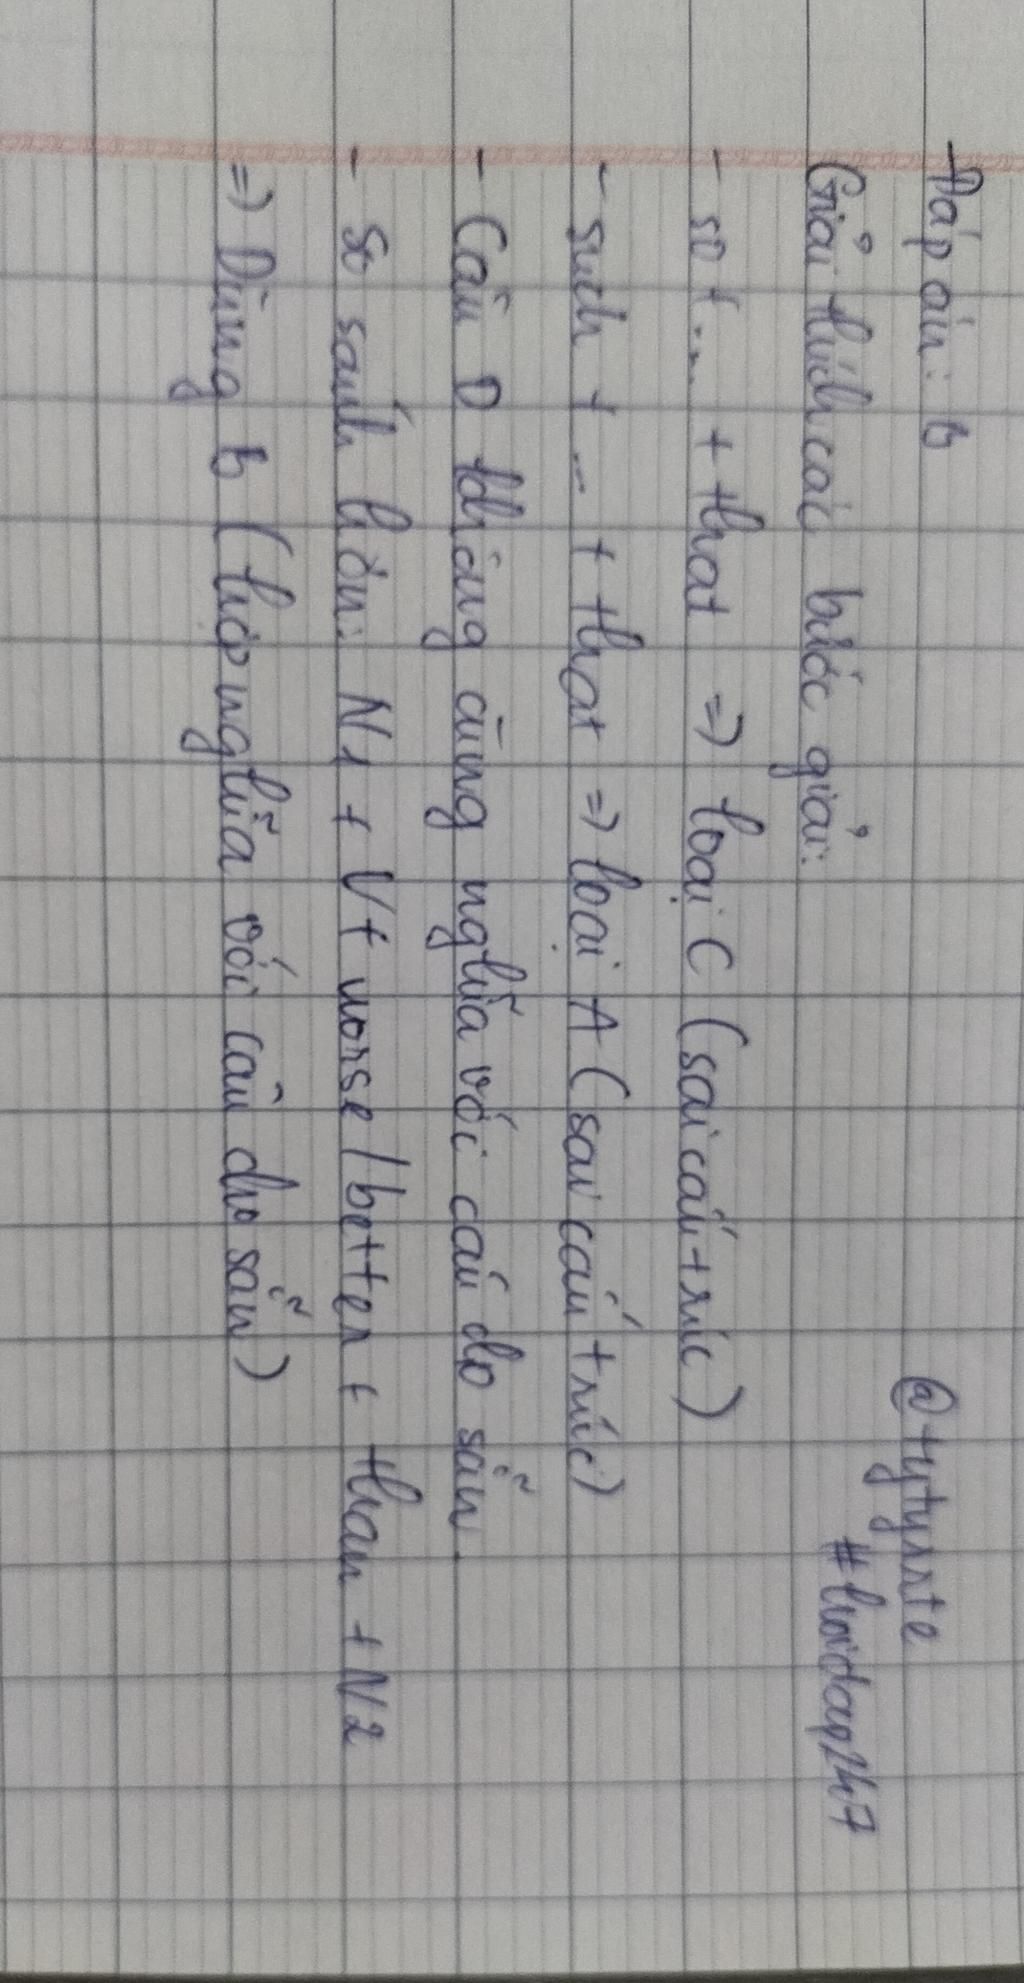 Đáp án: B
@tytyrrte
Giải thích các bước giải:
#hoidap247
- so + ... + that => loại C (sai cấu trúc)
- such + ... + that => loại A (sai cấu trúc)
- Câu D không cùng nghĩa với câu cho sẵn.
- So sánh hơn: N1 + V + worse / better + than + N2
=> Dùng B (hợp nghĩa với câu cho sẵn)